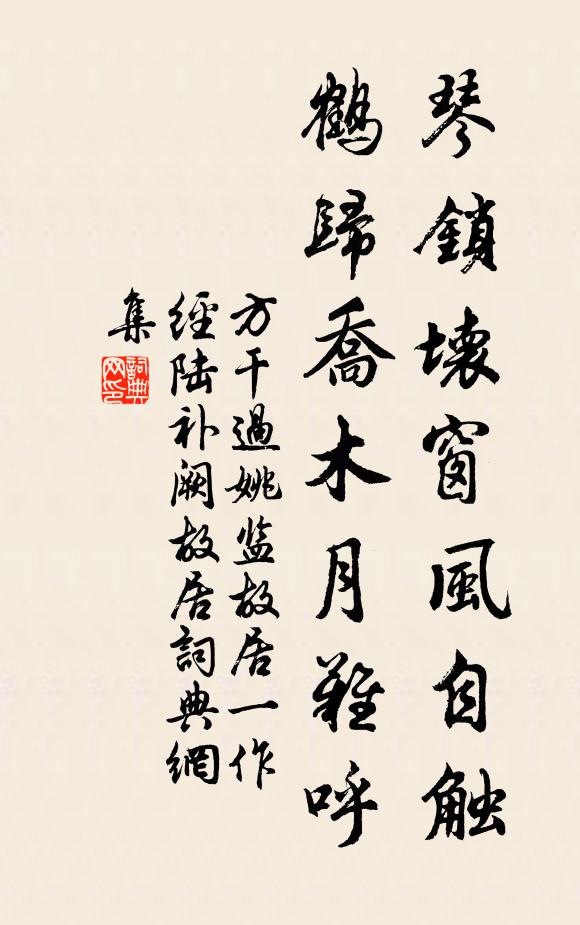 琴鎖壊窗風自触
鶴歸喬木月難呼
方干過姚监故居一作
經陆补阙故居詞典網
集
詞典
网印